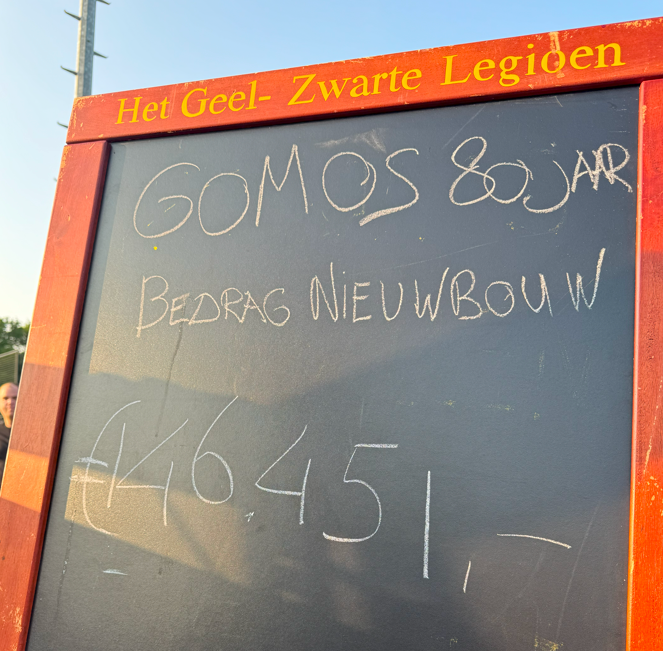 Het Geel- Zwarte Legioen
GOMOS 80 JAAR
BEDRAG NIEUWBOUW
€146.451,-